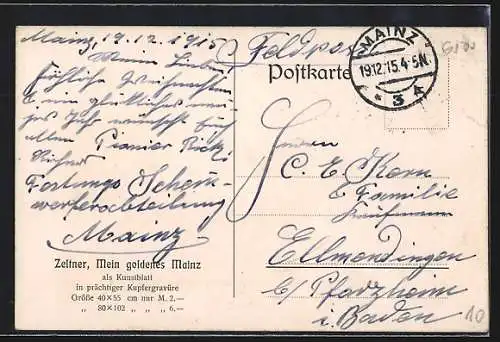 Mainz, 19.12.1915
Meine Lieben,
fröhliche Weihnachten
& ein glückliches neu-
jes Jahr wünscht Euch
allen Pionier Rick.
Festungs Schein-
werferabteilung
Mainz
Zeltner, Mein goldenes Mainz
als Kunstblatt
in prächtiger Kupfergravüre
Größe 40×55 cm nur M. 2.—
„ 80×102 „ „ „ 6.—
Feldpost
Postkarte
MAINZ
19.12.15.4-5N.
* 3 *
Herrn
C. E. Kern
& Familie
Kaufmann
Ellmendingen
b/ Pforzheim
i. Baden
10